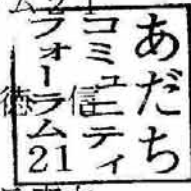 あだち
コミュニティ
フォーラム21